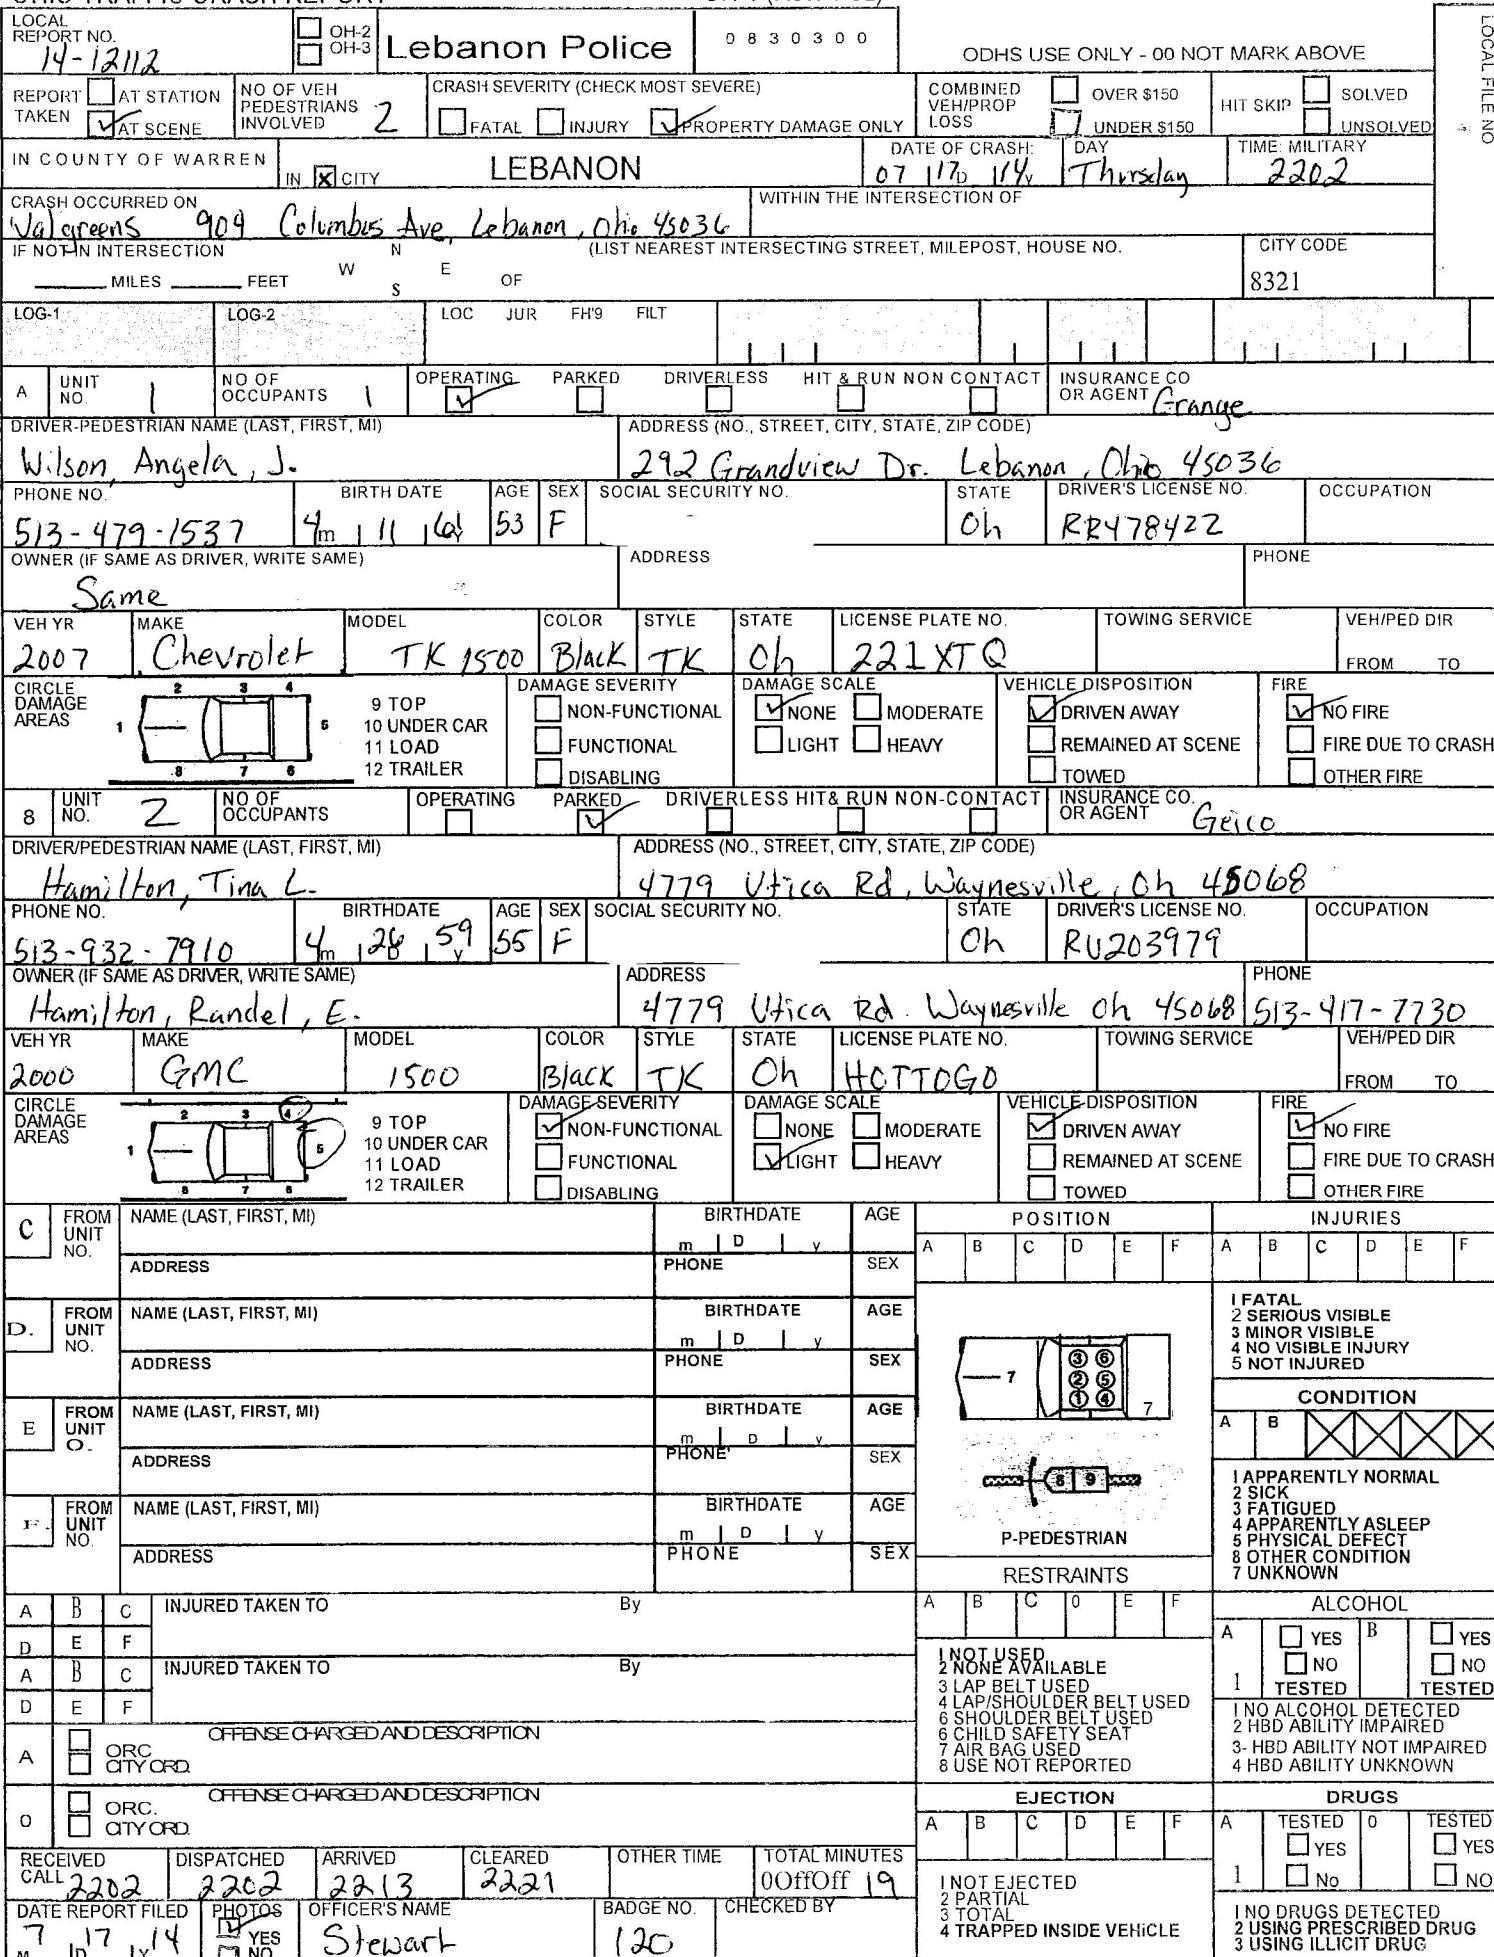 LOCAL REPORT NO. 14-12112
OH-2
OH-3
Lebanon Police
0 8 3 0 3 0 0
ODHS USE ONLY - 00 NOT MARK ABOVE
LOCAL FILE NO
REPORT TAKEN AT STATION AT SCENE
NO OF VEH PEDESTRIANS INVOLVED 2
CRASH SEVERITY (CHECK MOST SEVERE)
FATAL INJURY PROPERTY DAMAGE ONLY
COMBINED VEH/PROP LOSS OVER $150 UNDER $150
HIT SKIP SOLVED UNSOLVED
IN COUNTY OF WARREN
IN X CITY LEBANON
DATE OF CRASH: 07 17D 14Y
DAY Thursday
TIME: MILITARY 2202
CRASH OCCURRED ON
Walgreens 904 Columbus Ave, Lebanon, Ohio 45036
WITHIN THE INTERSECTION OF
IF NOT IN INTERSECTION
MILES FEET N W E S OF
(LIST NEAREST INTERSECTING STREET, MILEPOST, HOUSE NO.
CITY CODE 8321
LOG-1 LOG-2 LOC JUR FH'9 FILT
A UNIT NO. 1 NO OF OCCUPANTS 1
OPERATING PARKED DRIVERLESS HIT & RUN NON CONTACT
INSURANCE CO OR AGENT Grange
DRIVER-PEDESTRIAN NAME (LAST, FIRST, MI)
Wilson, Angela, J.
ADDRESS (NO., STREET, CITY, STATE, ZIP CODE)
292 Grandview Dr. Lebanon, Ohio 45036
PHONE NO. 513-479-1537
BIRTH DATE 4m 11 61y
AGE 53
SEX F
SOCIAL SECURITY NO.
STATE Oh
DRIVER'S LICENSE NO. RR478422
OCCUPATION
OWNER (IF SAME AS DRIVER, WRITE SAME)
Same
ADDRESS
PHONE
VEH YR 2007
MAKE Chevrolet
MODEL TK 1500
COLOR Black
STYLE TK
STATE Oh
LICENSE PLATE NO. 221XTQ
TOWING SERVICE
VEH/PED DIR FROM TO
CIRCLE DAMAGE AREAS
1 2 3 4 5 6 7 8
9 TOP
10 UNDER CAR
11 LOAD
12 TRAILER
DAMAGE SEVERITY
NON-FUNCTIONAL
FUNCTIONAL
DISABLING
DAMAGE SCALE
NONE MODERATE
LIGHT HEAVY
VEHICLE DISPOSITION
DRIVEN AWAY
REMAINED AT SCENE
TOWED
FIRE
NO FIRE
FIRE DUE TO CRASH
OTHER FIRE
8 UNIT NO. 2 NO OF OCCUPANTS
OPERATING PARKED DRIVERLESS HIT& RUN NON-CONTACT
INSURANCE CO. OR AGENT Geico
DRIVER/PEDESTRIAN NAME (LAST, FIRST, MI)
Hamilton, Tina L.
ADDRESS (NO., STREET, CITY, STATE, ZIP CODE)
4779 Utica Rd, Waynesville, Oh 45068
PHONE NO. 513-932-7910
BIRTHDATE 4m 26 59y
AGE 55
SEX F
SOCIAL SECURITY NO.
STATE Oh
DRIVER'S LICENSE NO. RU203979
OCCUPATION
OWNER (IF SAME AS DRIVER, WRITE SAME)
Hamilton, Randel, E.
ADDRESS
4779 Utica Rd. Waynesville Oh 45068
PHONE 513-417-7730
VEH YR 2000
MAKE GMC
MODEL 1500
COLOR Black
STYLE TK
STATE Oh
LICENSE PLATE NO. HOTTOGO
TOWING SERVICE
VEH/PED DIR FROM TO
CIRCLE DAMAGE AREAS
1 2 3 4 5 6 7 8
9 TOP
10 UNDER CAR
11 LOAD
12 TRAILER
DAMAGE SEVERITY
NON-FUNCTIONAL
FUNCTIONAL
DISABLING
DAMAGE SCALE
NONE MODERATE
LIGHT HEAVY
VEHICLE DISPOSITION
DRIVEN AWAY
REMAINED AT SCENE
TOWED
FIRE
NO FIRE
FIRE DUE TO CRASH
OTHER FIRE
C FROM UNIT NO. NAME (LAST, FIRST, MI) BIRTHDATE m D y AGE
ADDRESS PHONE SEX
D. FROM UNIT NO. NAME (LAST, FIRST, MI) BIRTHDATE m D y AGE
ADDRESS PHONE SEX
E FROM UNIT O. NAME (LAST, FIRST, MI) BIRTHDATE m D y AGE
ADDRESS PHONE' SEX
F. FROM UNIT NO. NAME (LAST, FIRST, MI) BIRTHDATE m D y AGE
ADDRESS PHONE SEX
POSITION
A B C D E F
7 3 6 2 5 1 4 7
8 9
P-PEDESTRIAN
INJURIES
A B C D E F
I FATAL
2 SERIOUS VISIBLE
3 MINOR VISIBLE
4 NO VISIBLE INJURY
5 NOT INJURED
CONDITION
A B
I APPARENTLY NORMAL
2 SICK
3 FATIGUED
4 APPARENTLY ASLEEP
5 PHYSICAL DEFECT
8 OTHER CONDITION
7 UNKNOWN
A B C INJURED TAKEN TO By
D E F
A B C INJURED TAKEN TO By
D E F
A ORC CITY ORD. OFFENSE CHARGED AND DESCRIPTION
0 ORC. CITY ORD. OFFENSE CHARGED AND DESCRIPTION
RESTRAINTS
A B C 0 E F
I NOT USED
2 NONE AVAILABLE
3 LAP BELT USED
4 LAP/SHOULDER BELT USED
6 SHOULDER BELT USED
6 CHILD SAFETY SEAT
7 AIR BAG USED
8 USE NOT REPORTED
ALCOHOL
A YES B YES
NO NO
1 TESTED TESTED
I NO ALCOHOL DETECTED
2 HBD ABILITY IMPAIRED
3- HBD ABILITY NOT IMPAIRED
4 HBD ABILITY UNKNOWN
EJECTION
A B C D E F
I NOT EJECTED
2 PARTIAL
3 TOTAL
4 TRAPPED INSIDE VEHICLE
DRUGS
A TESTED 0 TESTED
YES YES
1 No NO
I NO DRUGS DETECTED
2 USING PRESCRIBED DRUG
3 USING ILLICIT DRUG
RECEIVED CALL 2202
DISPATCHED 2202
ARRIVED 2213
CLEARED 2221
OTHER TIME
TOTAL MINUTES 0OffOff 19
DATE REPORT FILED 7 M 17 D 14 Y
PHOTOS YES NO
OFFICER'S NAME Stewart
BADGE NO. 120
CHECKED BY